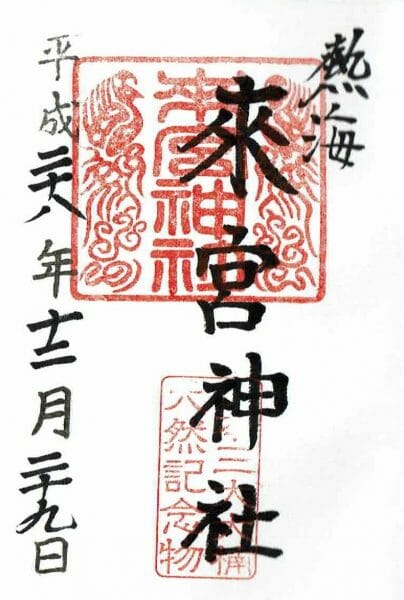 熱海
來宮神社
平成二十八年十二月二十九日
來宮神社
天然記念物